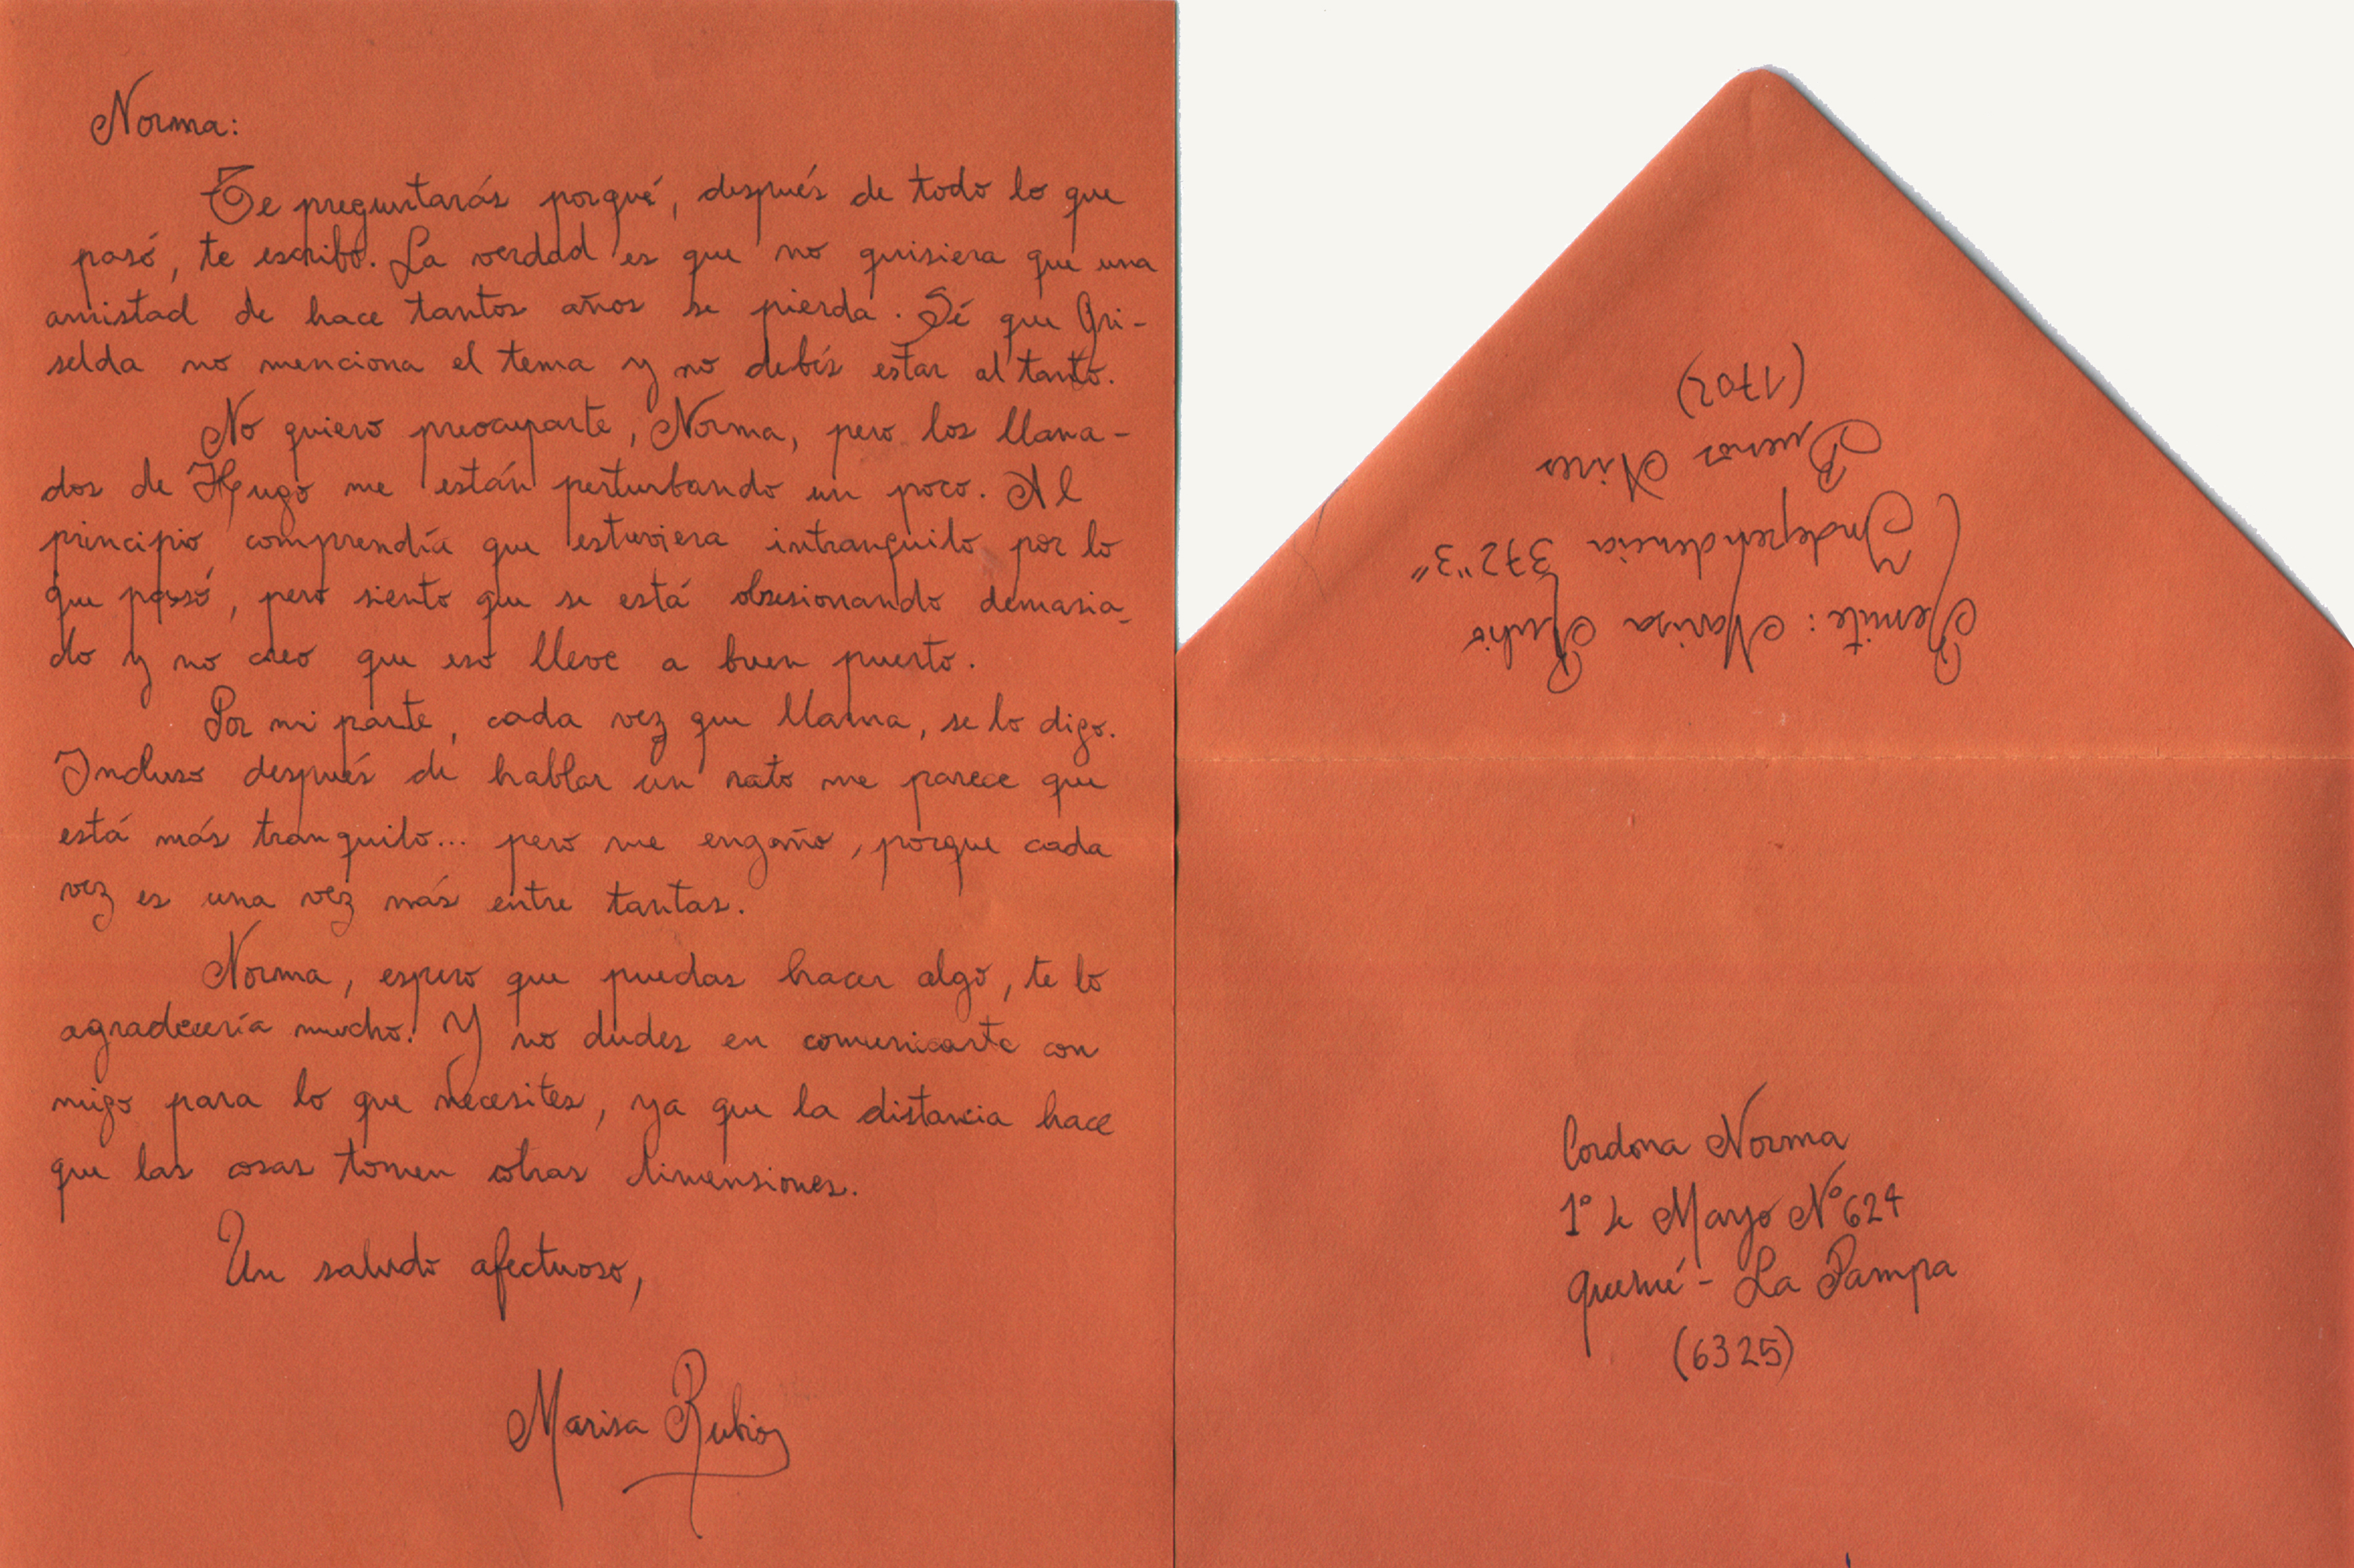 Norma:
Te preguntarás porqué, después de todo lo que
pasó, te escribo. La verdad es que no quisiera que una
amistad de hace tantos años se pierda. Sé que Gri-
selda no menciona el tema y no debés estar al tanto.
No quiero preocuparte, Norma, pero los llama-
dos de Hugo me están perturbando un poco. Al
principio comprendía que estuviera intranquilo por lo
que pasó, pero siento que se está obsesionando demasia-
do y no creo que eso lleve a buen puerto.
Por mi parte, cada vez que llama, se lo digo.
Incluso después de hablar un rato me parece que
está más tranquilo... pero me engaño, porque cada
vez es una vez más entre tantas.
Norma, espero que puedas hacer algo, te lo
agradecería mucho. Y no dudes en comunicarte con
migo para lo que necesites, ya que la distancia hace
que las cosas tomen otras dimensiones.
Un saludo afectuoso,
Marisa Rubio
Remite: Marisa Rubio
Independencia 372 "3"
Buenos Aires
(1702)
Cordona Norma
1° de Mayo N° 624
Quehué - La Pampa
(6325)